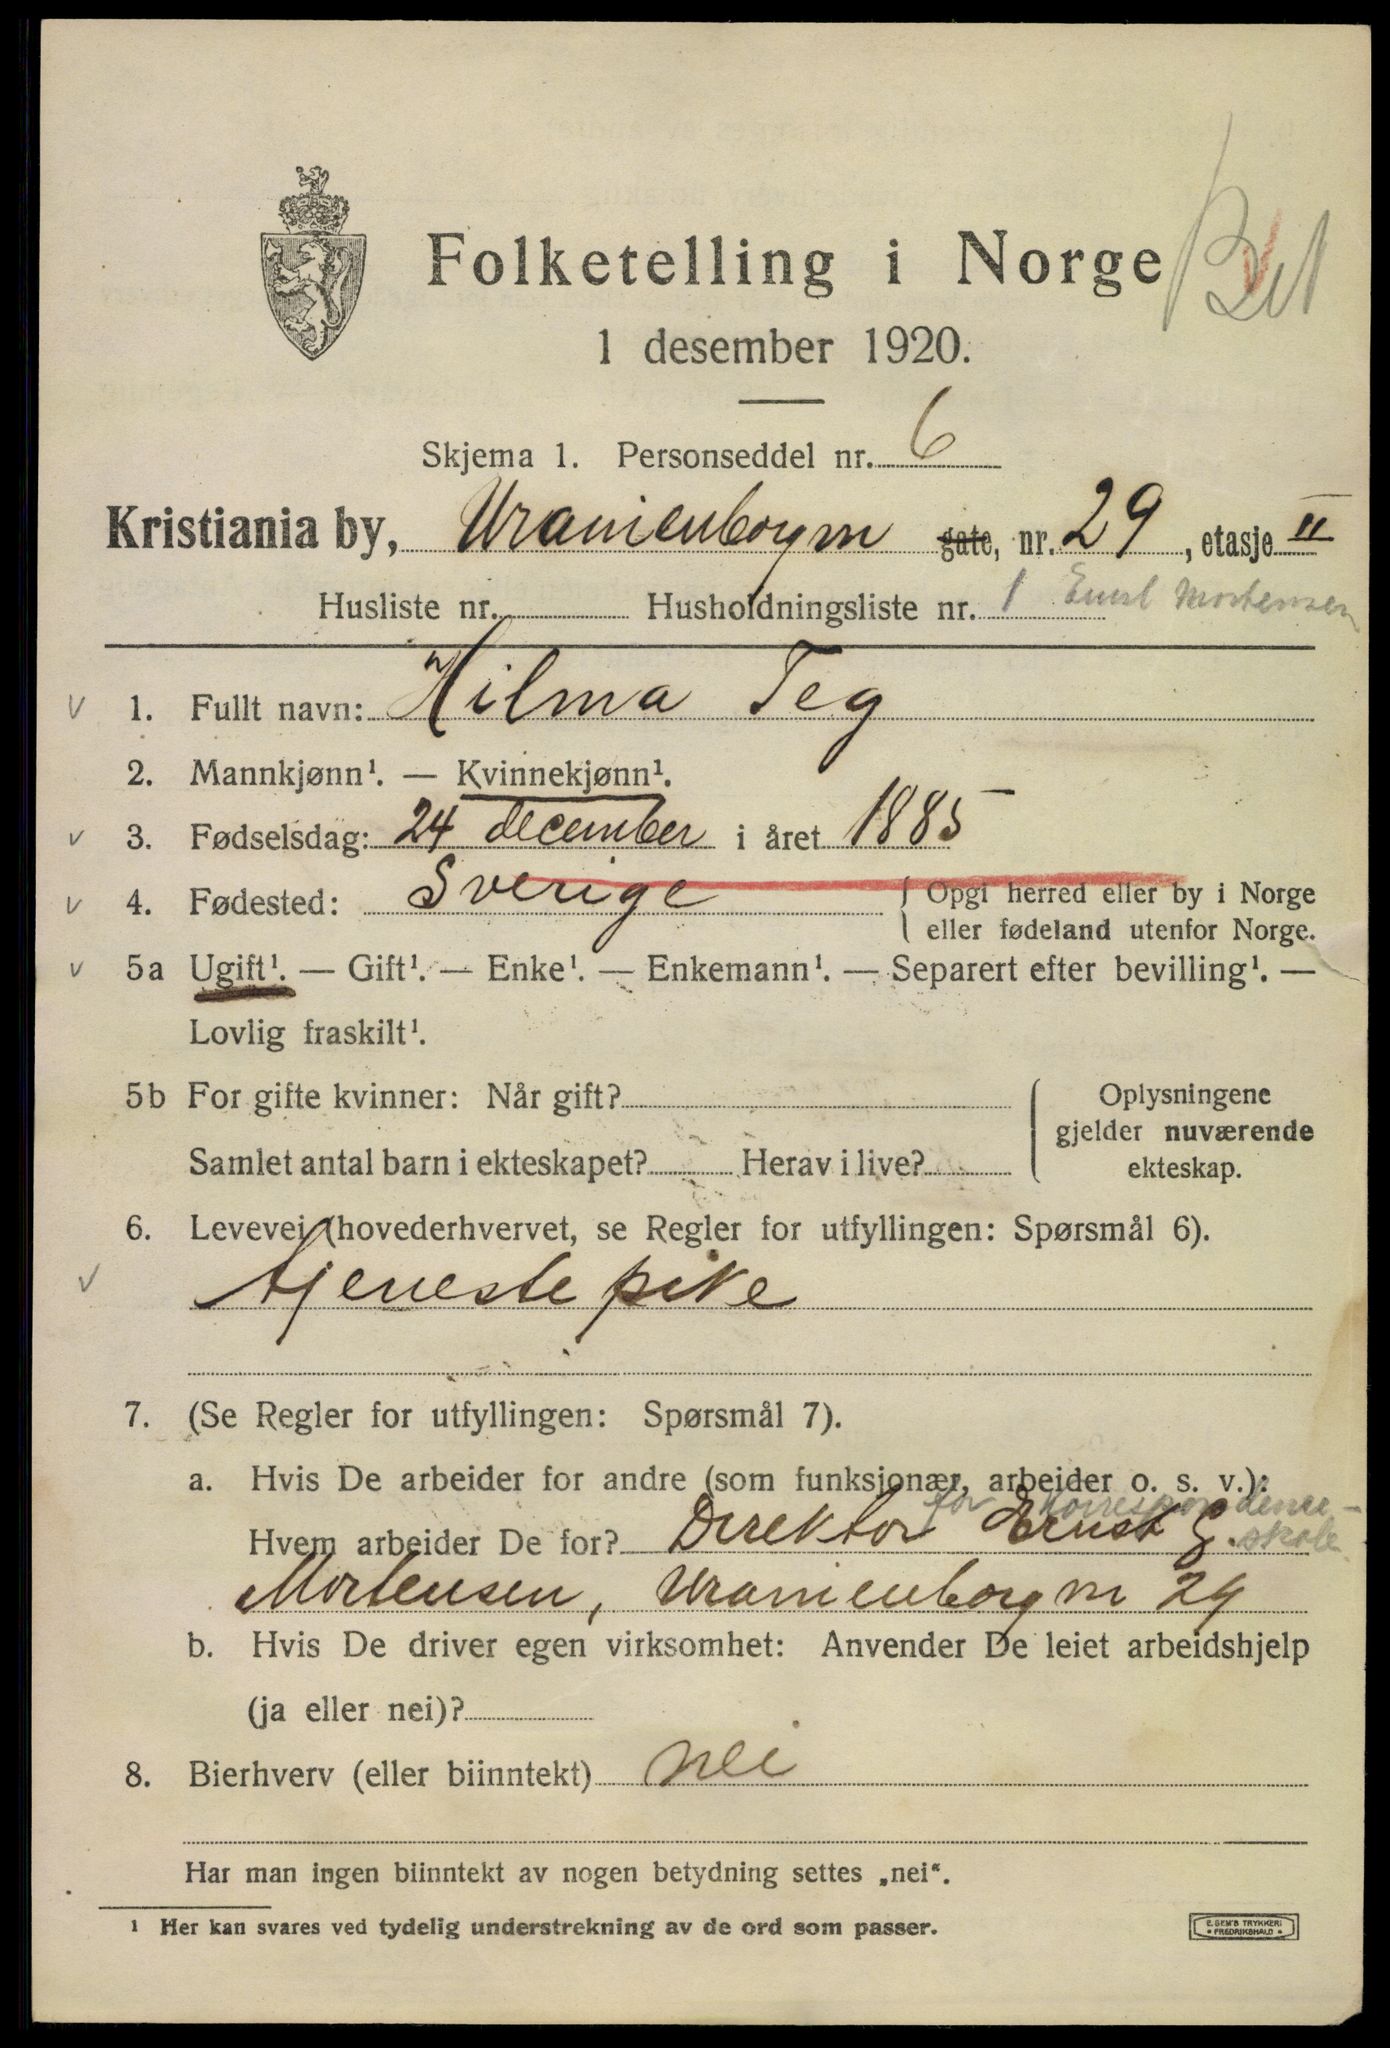 Folketelling i Norge
1 desember 1920.
Skjema 1. Personseddel nr. 6
Kristiania by, Uranienborgm gate, nr. 29, etasje II
Husliste nr. Husholdningsliste nr. 1 Ernst Mortensen
1. Fullt navn: Hilma Teg
2. Mannkjønn¹. — Kvinnekjønn¹.
3. Fødselsdag: 24 december i året 1885
4. Fødested: Sverige { Opgi herred eller by i Norge
eller fødeland utenfor Norge.
5a Ugift¹. — Gift¹. — Enke¹. — Enkemann¹. — Separert efter bevilling¹. —
Lovlig fraskilt¹.
5b For gifte kvinner: Når gift? { Oplysningene
gjelder nuværende
Samlet antal barn i ekteskapet? Herav i live?
ekteskap.
6. Levevei (hovederhvervet, se Regler for utfyllingen: Spørsmål 6).
tjenestepike
7. (Se Regler for utfyllingen: Spørsmål 7).
a. Hvis De arbeider for andre (som funksjonær, arbeider o. s. v.):
for Korrespondence-
Hvem arbeider De for? Direktør Ernst G. skole
Mortensen, Uranienborgm 29
b. Hvis De driver egen virksomhet: Anvender De leiet arbeidshjelp
(ja eller nei)?
8. Bierhverv (eller biinntekt) nei
Har man ingen biinntekt av nogen betydning settes „nei“.
¹ Her kan svares ved tydelig understrekning av de ord som passer.
E. SEM'S TRYKKERI
FREDRIKSHALD